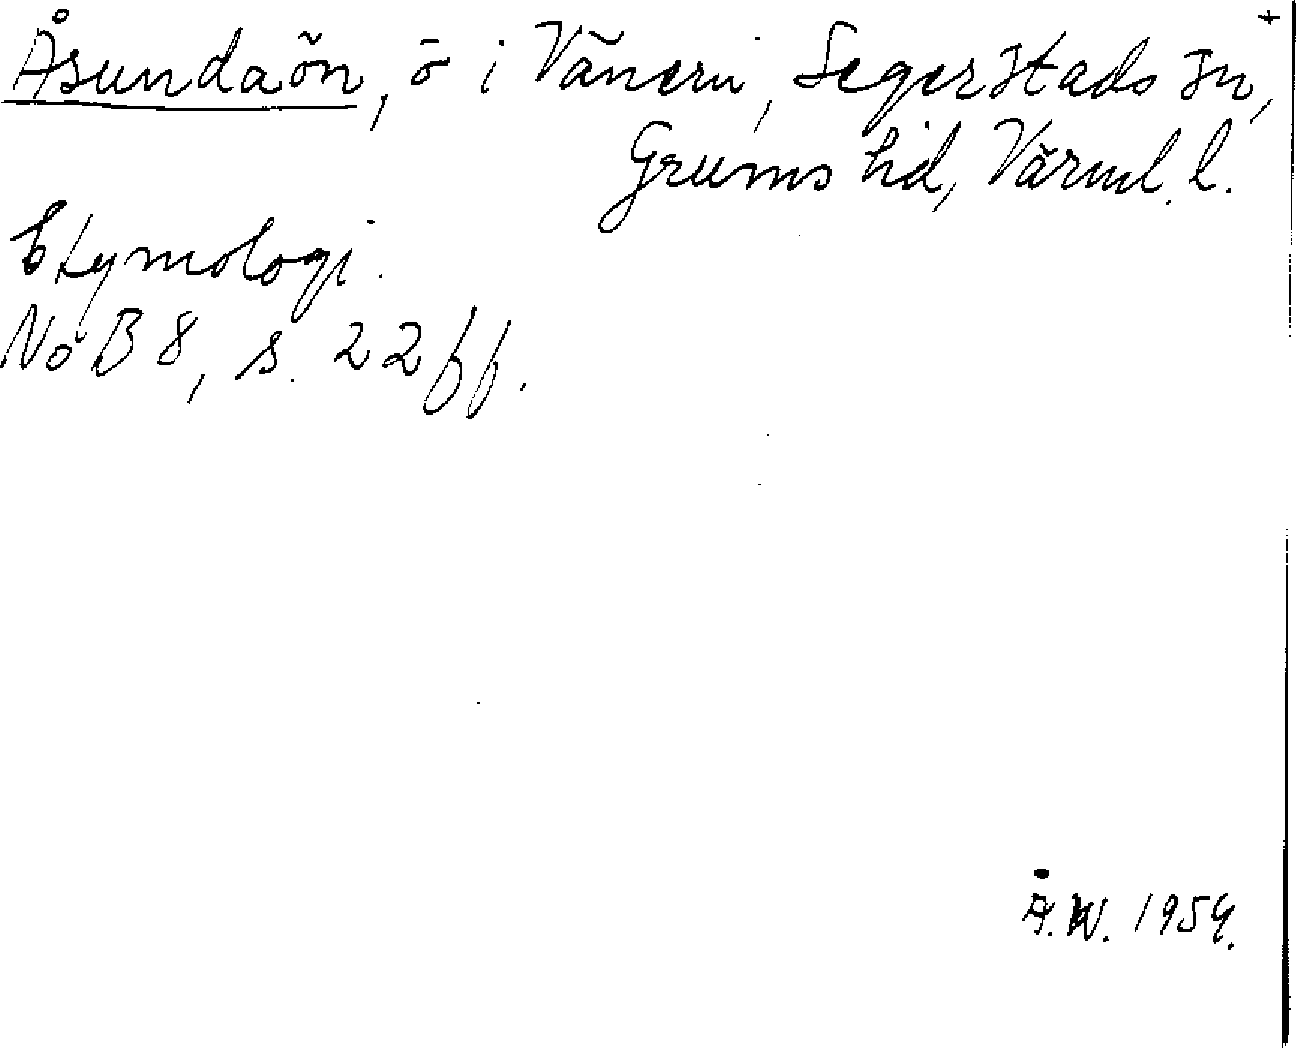 Åsundaön, ö i Vänern, Segerstads sn,
Grums hd, Värml. l.
Etymologi.
NoB 8, s. 22 ff.
Å.W. 1959.